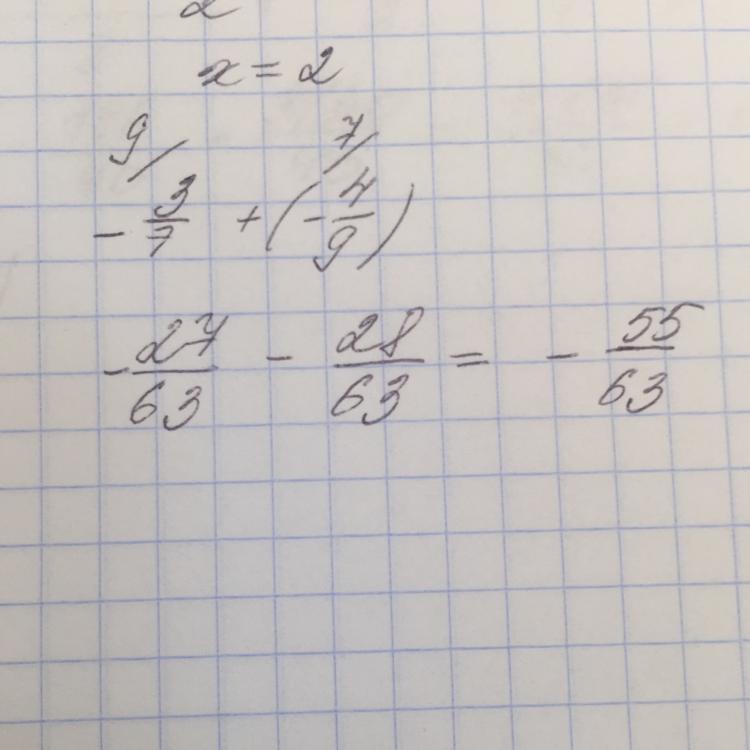 2
x = 2
9/ 7/
- 3/7 + (- 4/9)
- 27/63 - 28/63 = - 55/63